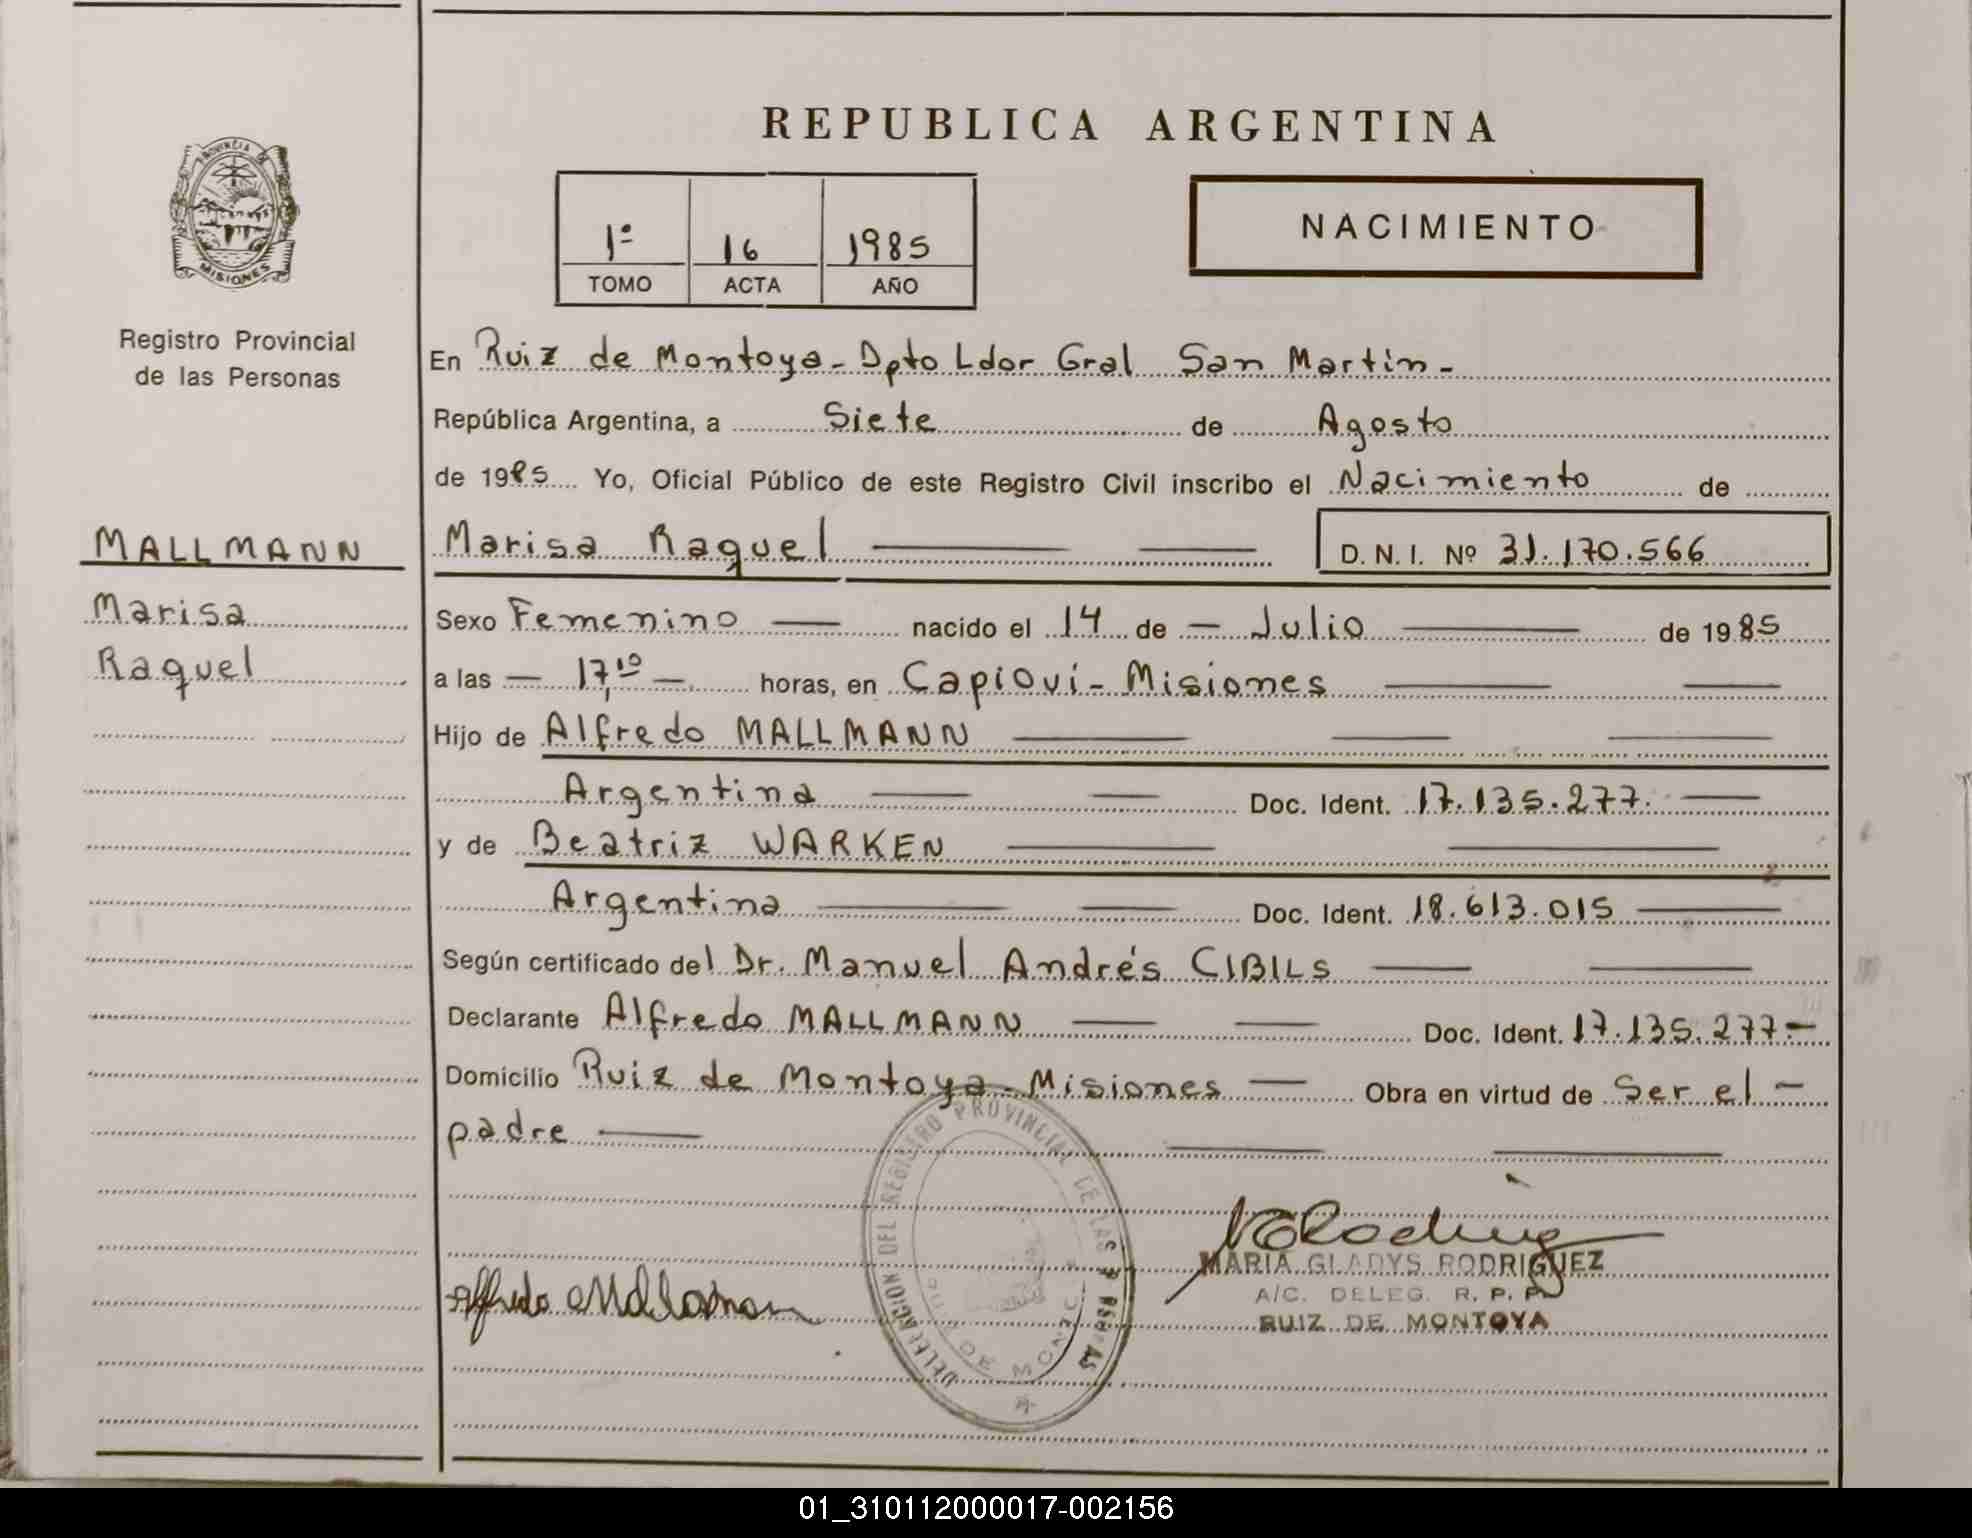 REPUBLICA ARGENTINA
PROVINCIA DE
MISIONES
Registro Provincial
de las Personas
1º 16 1985
TOMO ACTA AÑO
NACIMIENTO
En Ruiz de Montoya - Dpto Ldor Gral San Martín -
República Argentina, a Siete de Agosto
de 1985 Yo, Oficial Público de este Registro Civil inscribo el Nacimiento de
MALLMANN
Marisa Raquel
D. N. I. Nº 31.170.566
Marisa
Raquel
Sexo Femenino — nacido el 14 de — Julio — de 1985
a las — 17,10 — horas, en Capioví - Misiones
Hijo de Alfredo MALLMANN
Argentina — Doc. Ident. 17.135.277.
y de Beatriz WARKEN
Argentina — Doc. Ident. 18.613.015
Según certificado del Dr. Manuel Andrés CIBILS
Declarante Alfredo MALLMANN — Doc. Ident. 17.135.277 -
Domicilio Ruiz de Montoya - Misiones — Obra en virtud de Ser el -
padre
DELEGACION DEL REGISTRO PROVINCIAL DE LAS
DE
Alfredo Mallmann
MARIA GLADYS RODRIGUEZ
A/C. DELEG. R. P. P.
RUIZ DE MONTOYA
01_310112000017-002156